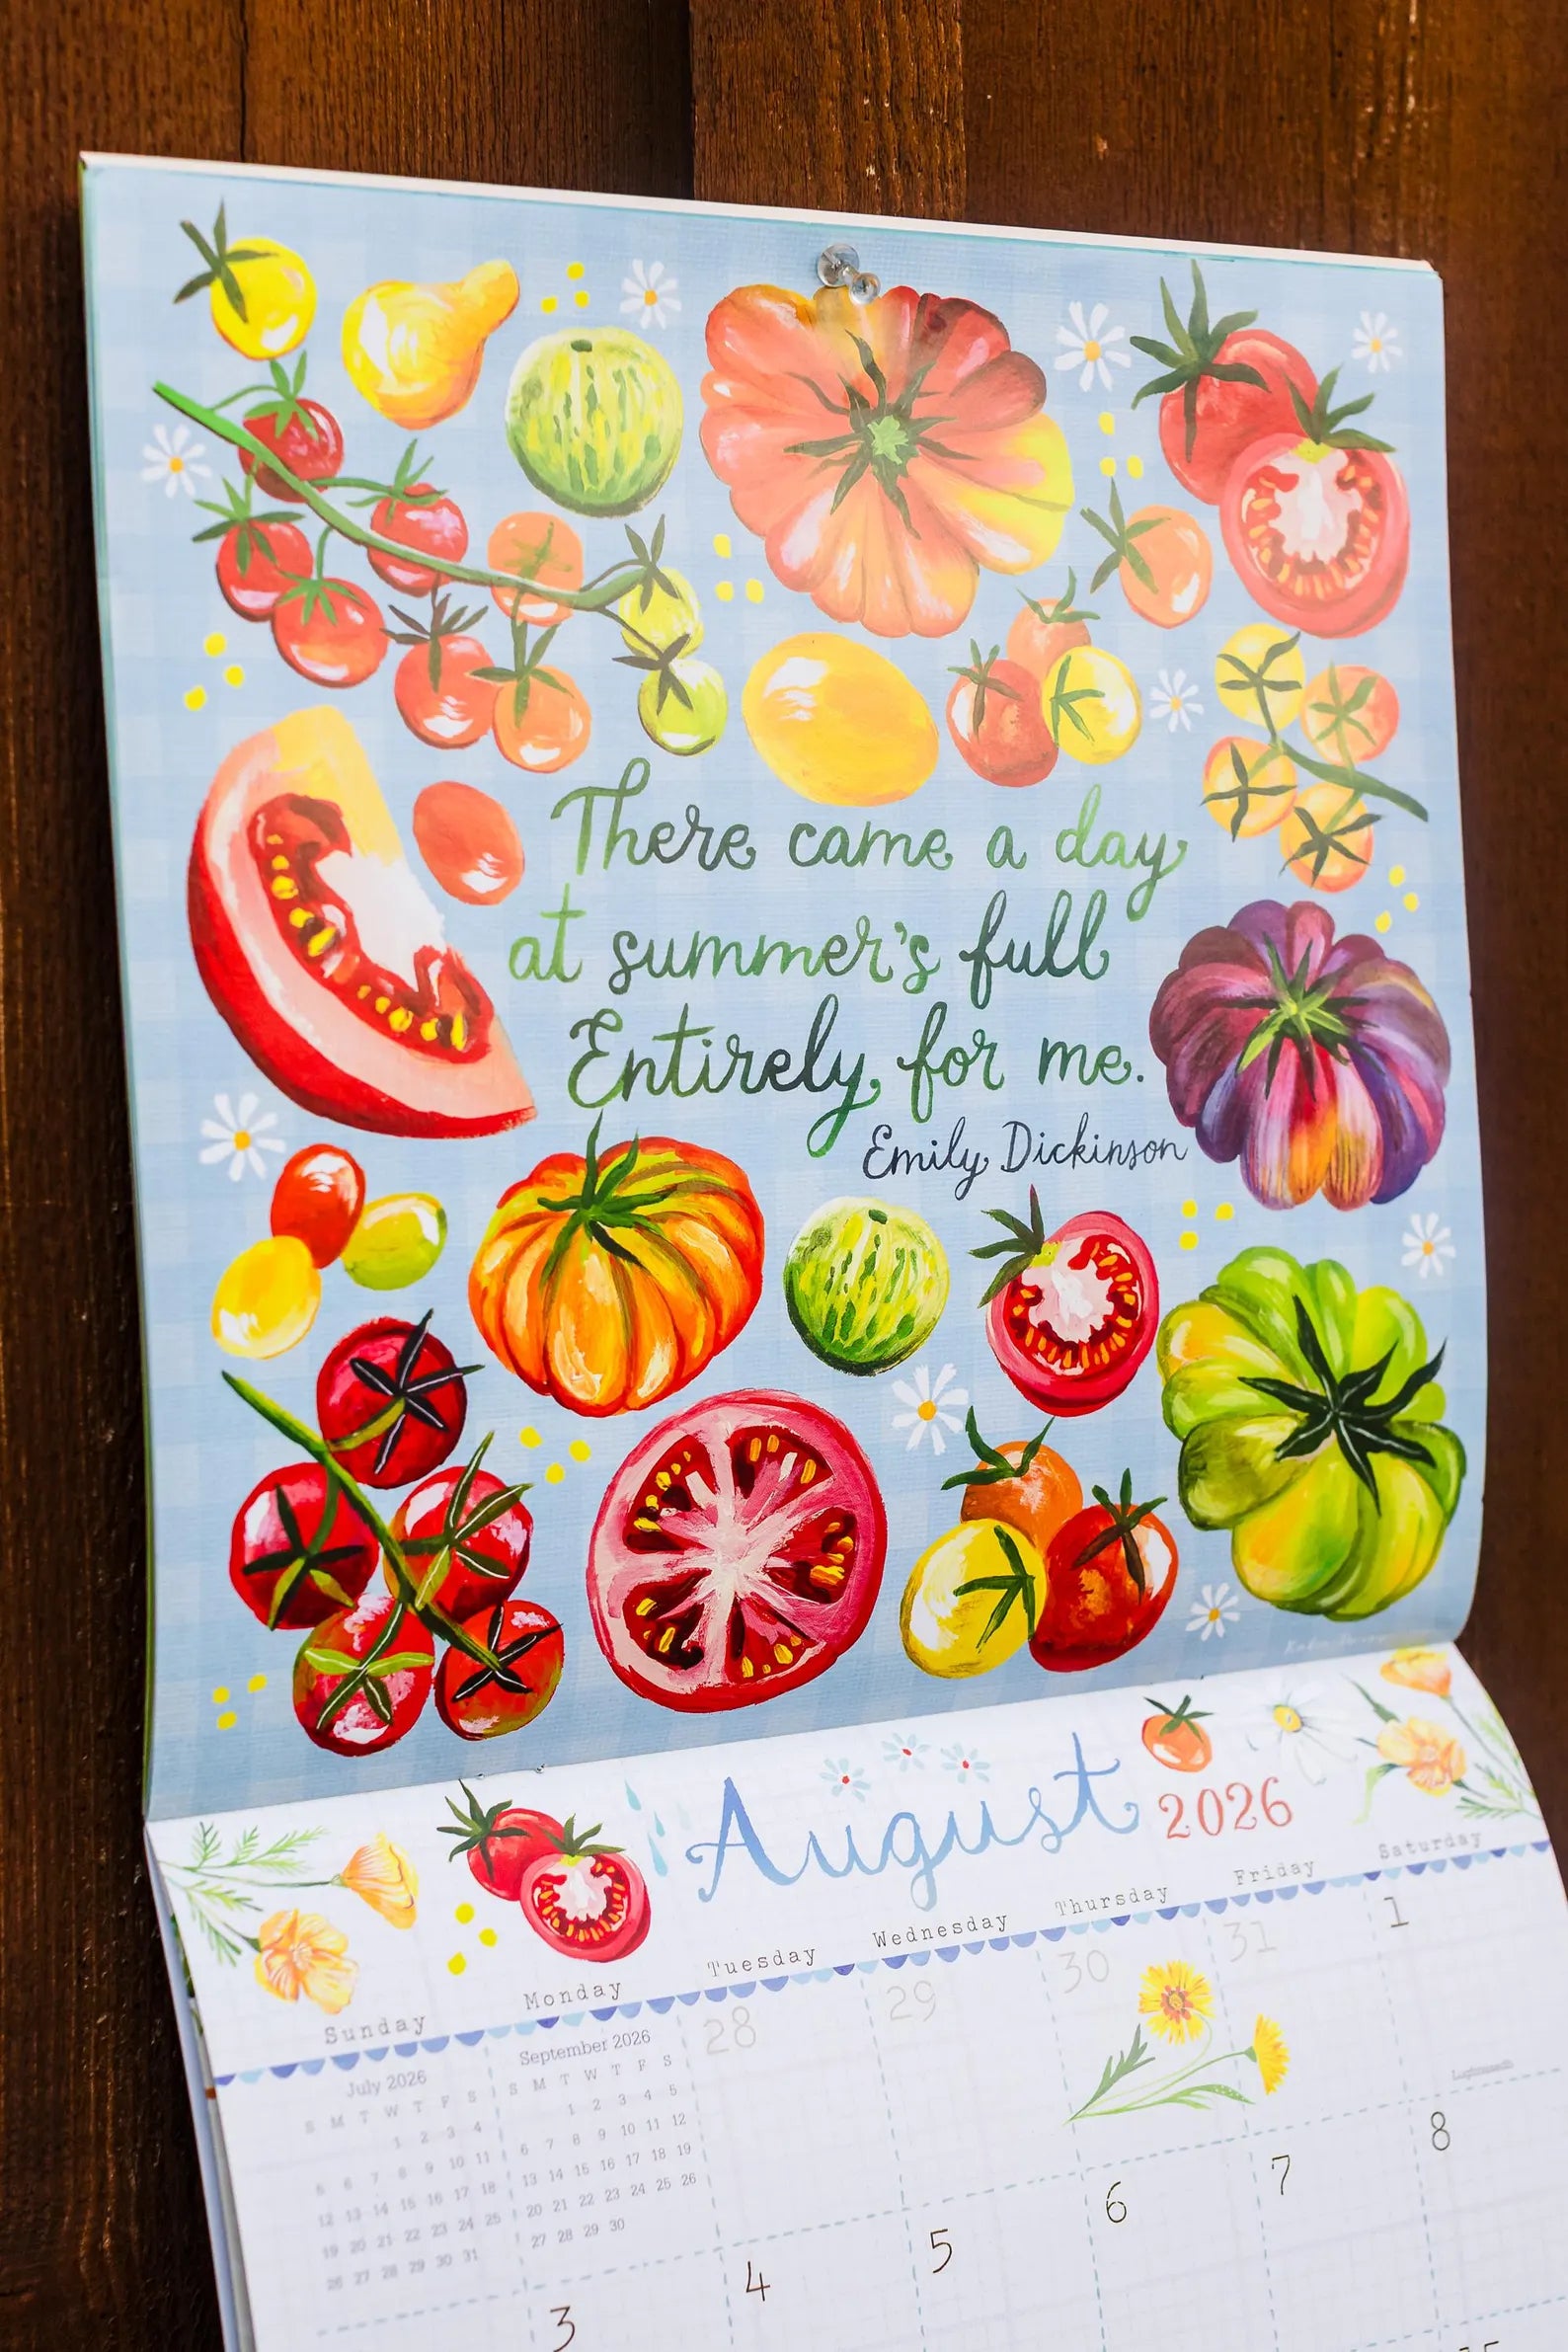 There came a day
at summer's full
Entirely for me.
Emily Dickinson
August 2026
Sunday Monday Tuesday Wednesday Thursday Friday Saturday
July 2026
S M T W T F S
1 2 3 4
5 6 7 8 9 10 11
12 13 14 15 16 17 18
19 20 21 22 23 24 25
26 27 28 29 30 31
September 2026
S M T W T F S
1 2 3 4 5
6 7 8 9 10 11 12
13 14 15 16 17 18 19
20 21 22 23 24 25 26
27 28 29 30
28 29 30 31 1
3 4 5 6 7 8